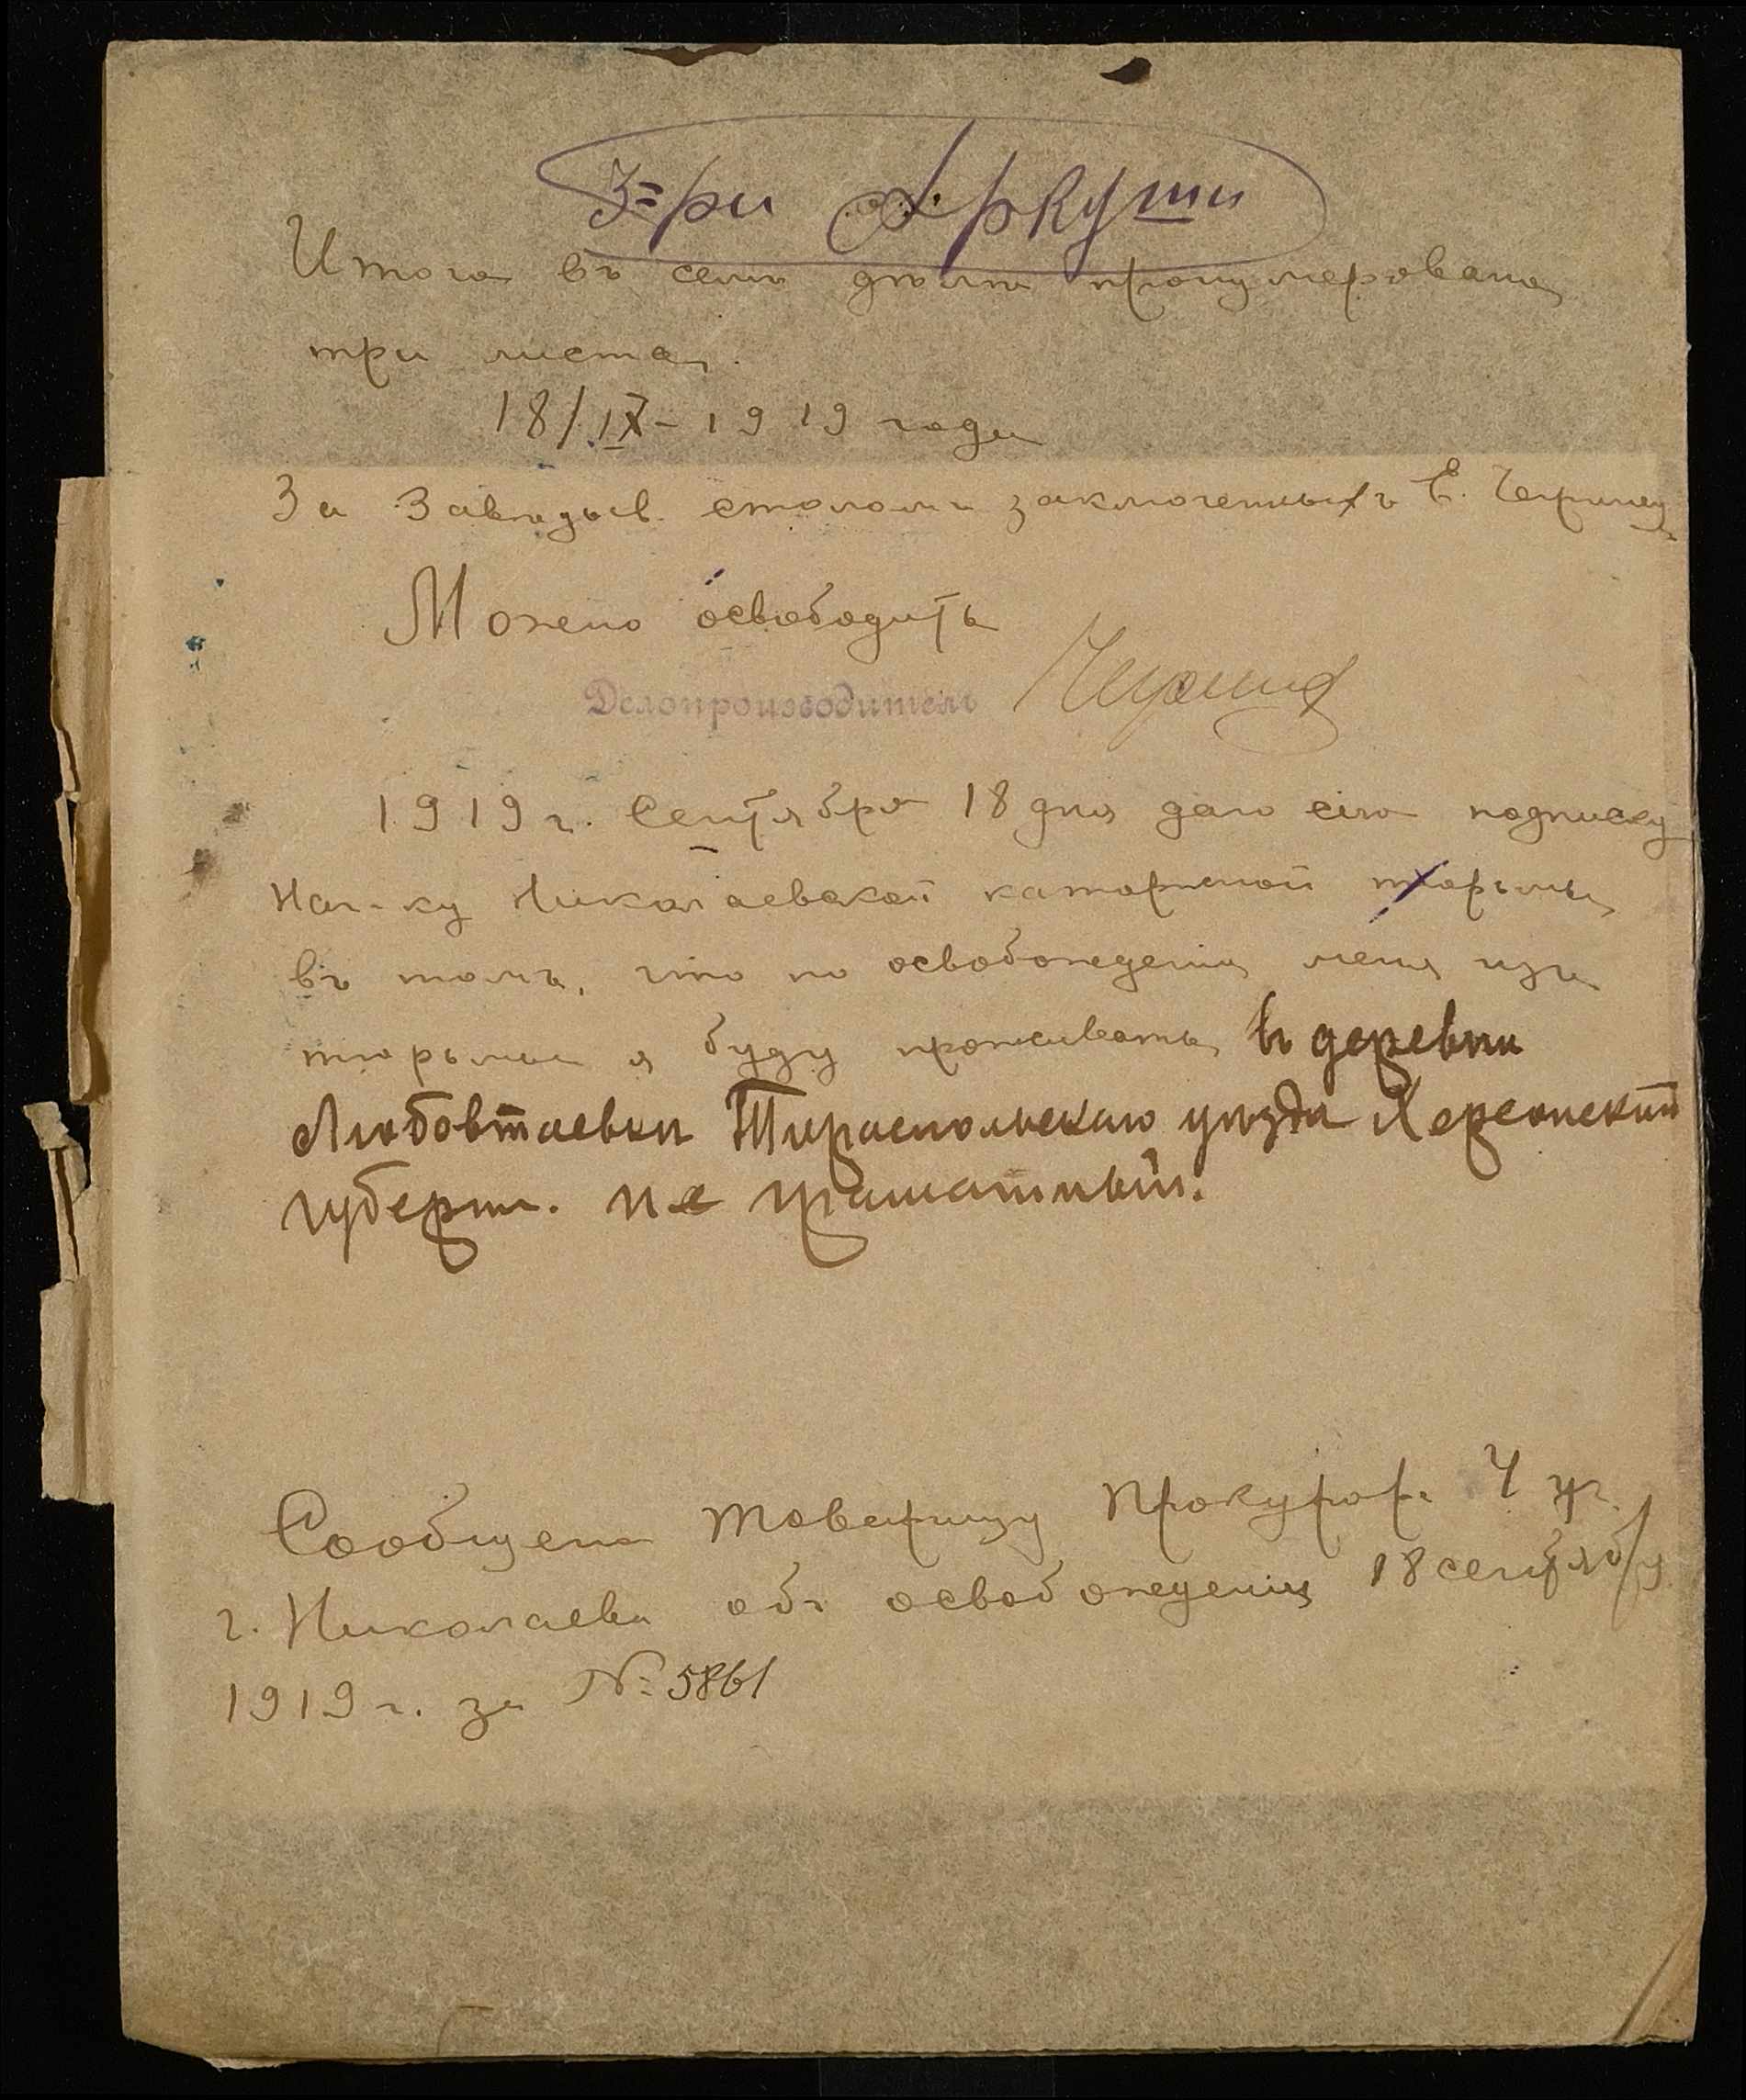 3=ри Аркуши
Итого въ семъ дѣлѣ пронумеровано
три листа.
18/IX - 1919 года
За Завѣдыв. столомъ заключенныхъ Е.
Можно освободить
Делопроизводитель
1919 г. Сентября 18 дня даю сію подписку
Нач-ку Николаевской каторжной тюрьмы
въ томъ, что по освобожденіи меня изъ
тюрьмы я буду проживать въ деревни
Тираспольскаго уѣзда Херсонский
губерни. не граматный.
Сообщено Товарищу Прокурора 4 уч.
г. Николаева объ освобожденіи 18 сентября
1919 г. за № 5861